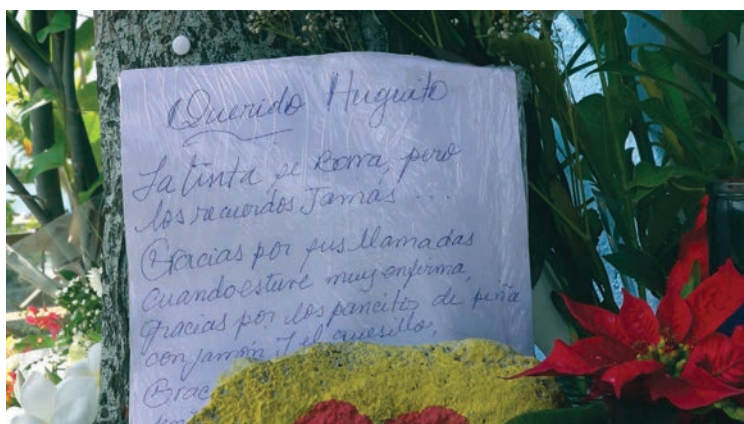 Querido Huguito
La tinta se Borra, pero
los recuerdos Jamás ...
Gracias por sus llamadas
cuando estuve muy enfirma,
gracias por los pancitos de piña
con jamón y el quesillo,
Grac